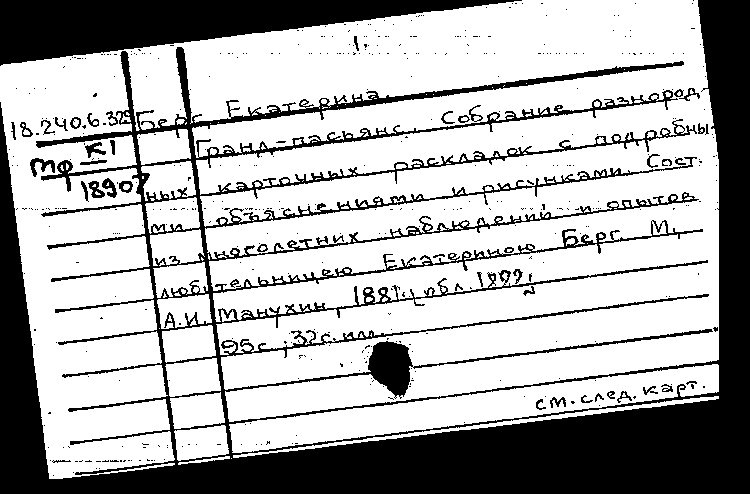 1.
18.240.6.325 Берг, Екатерина.
Мф К1 Гранд-пасьянс. Собрание разнород-
18907 ных карточных раскладок с подробны-
ми объяснениями и рисунками. Сост.
из многолетних наблюдений и опытов
любительницею Екатериною Берг. М.,
А.И. Манухин, 1881. обл.
95с., 32с. илл.
см. след. карт.